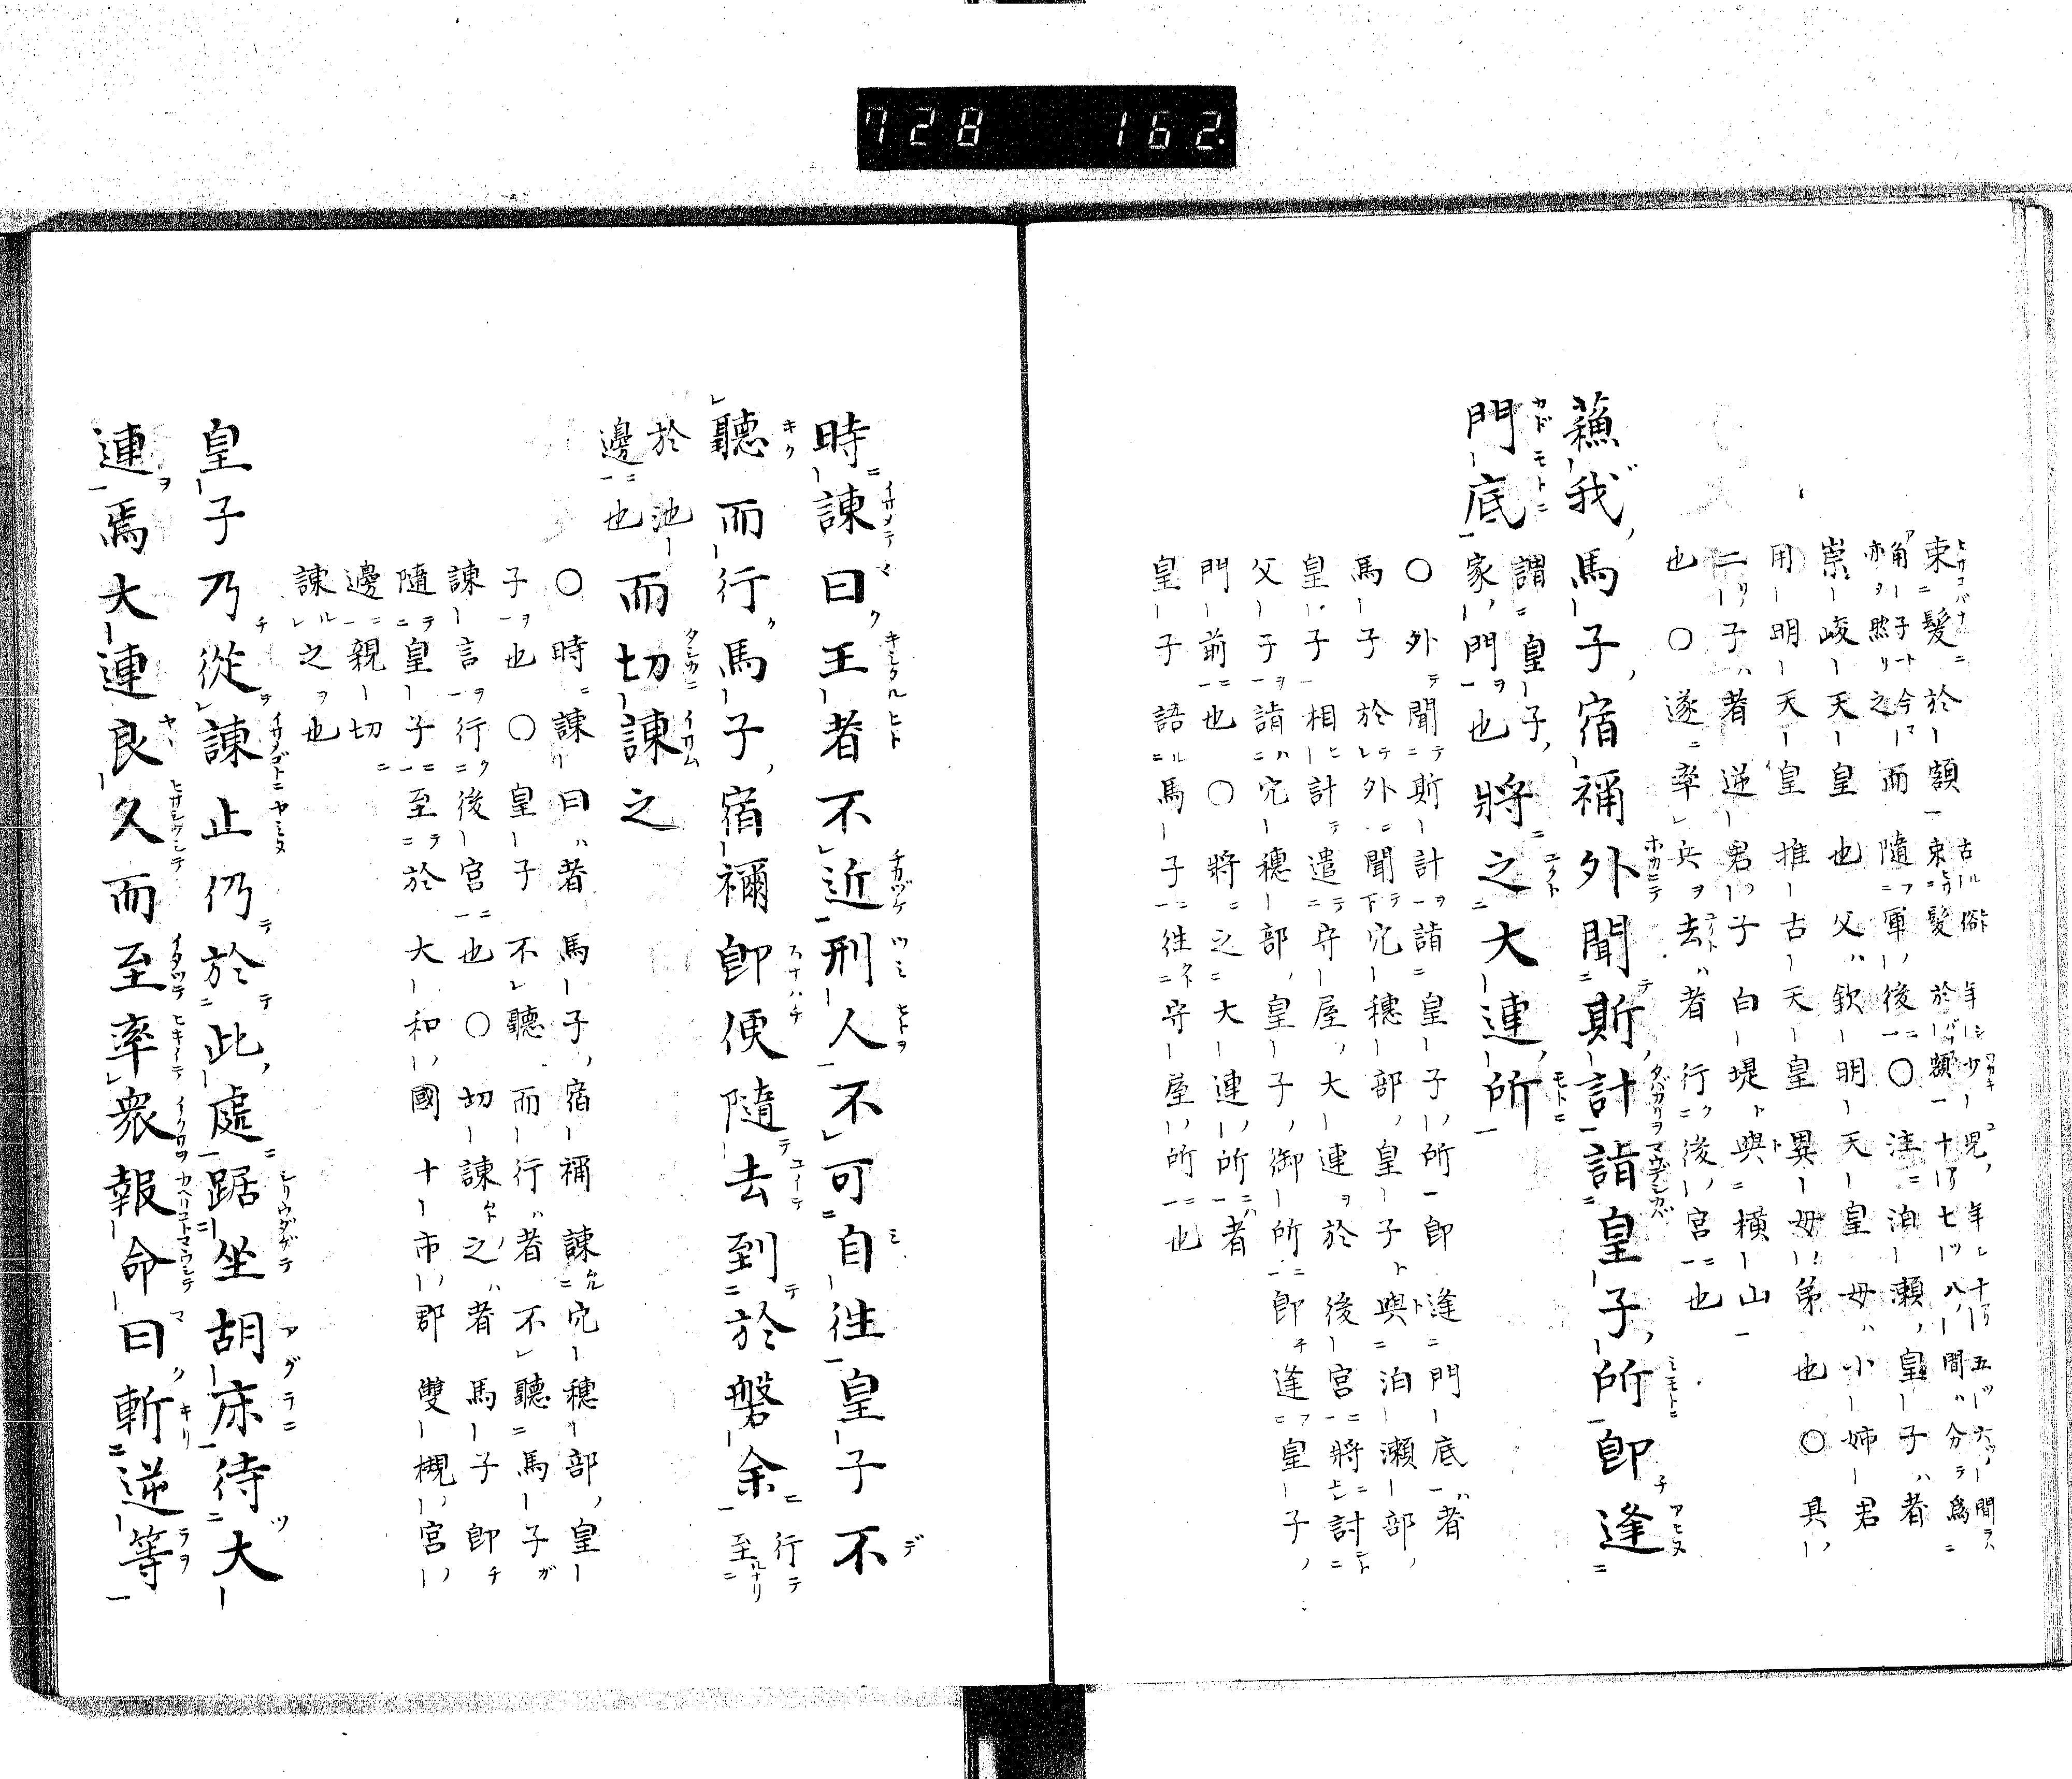 728 162.
束髪於額 古俗年少児年十五六間
束髪於額十七八間分為
角子今亦然之而隨軍後〇注泊瀬皇子者
崇峻天皇也父欽明天皇母小姉君
用明天皇推古天皇異母弟也〇具
二子者逆君子白堤與横山
也〇遂率兵去者行後宮也
蘓我馬子宿祢外聞斯計詣皇子所即逢
門底 謂皇子家門也 將之大連所
〇外聞斯計詣皇子所即逢門底者
馬子於外聞穴穂部皇子與泊瀬部
皇子相計遣守屋大連於後宮將討
父子詣穴穂部皇子御所即逢皇子
門前也〇將之大連所者
皇子語馬子往守屋所也
時諌曰王者不近刑人不可自往皇子不
聽而行馬子宿禰即便隨去到於磐余 行至
於池邊也 而切諌之
〇時諌曰者馬子宿祢諌穴穂部皇
子也〇皇子不聽而行者不聽馬子
諌言行後宮也〇切諌之者馬子即
隨皇子至於大和國十市郡雙槻宮
邊親切
諌之也
皇子乃從諌止仍於此處踞坐胡床待大
連焉大連良久而至率衆報命曰斬逆等